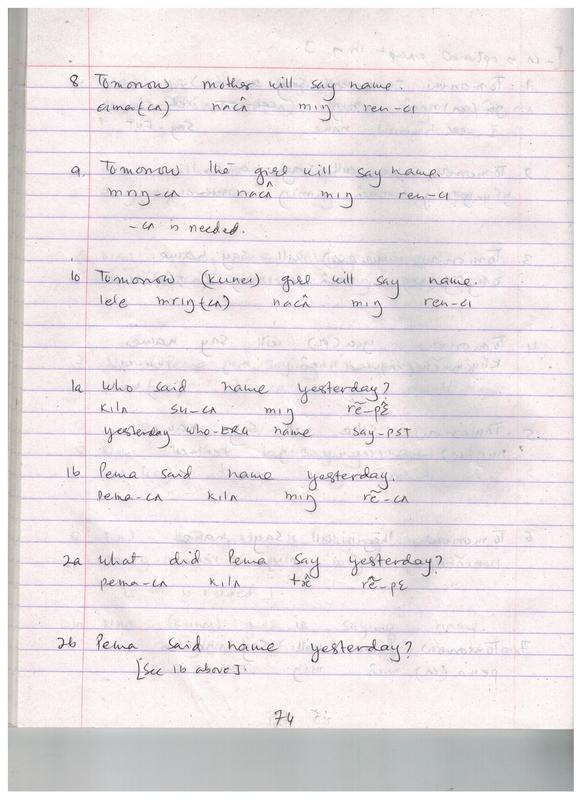 8 Tomorrow mother will say name.
ama(cʌ) nacʌ̂ miŋ ren-cɩ
9. Tomorrow the girl will say name.
mriŋ-cʌ nacʌ̂ miŋ ren-cɩ
-cʌ is needed.
10 Tomorrow (Kunei) girl will say name.
lele mriŋ(cʌ) nacʌ̂ miŋ ren-cɩ
1a Who said name yesterday?
kilʌ su-cʌ miŋ rẽ-pɛ
yesterday who-ERG name say-PST
1b Pema said name yesterday.
pema-cʌ kilʌ miŋ rẽ-cʌ
2a What did Pema say yesterday?
pema-cʌ kilʌ rẽ-pɛ
2b Pema said name yesterday?
[See 1b above].
74